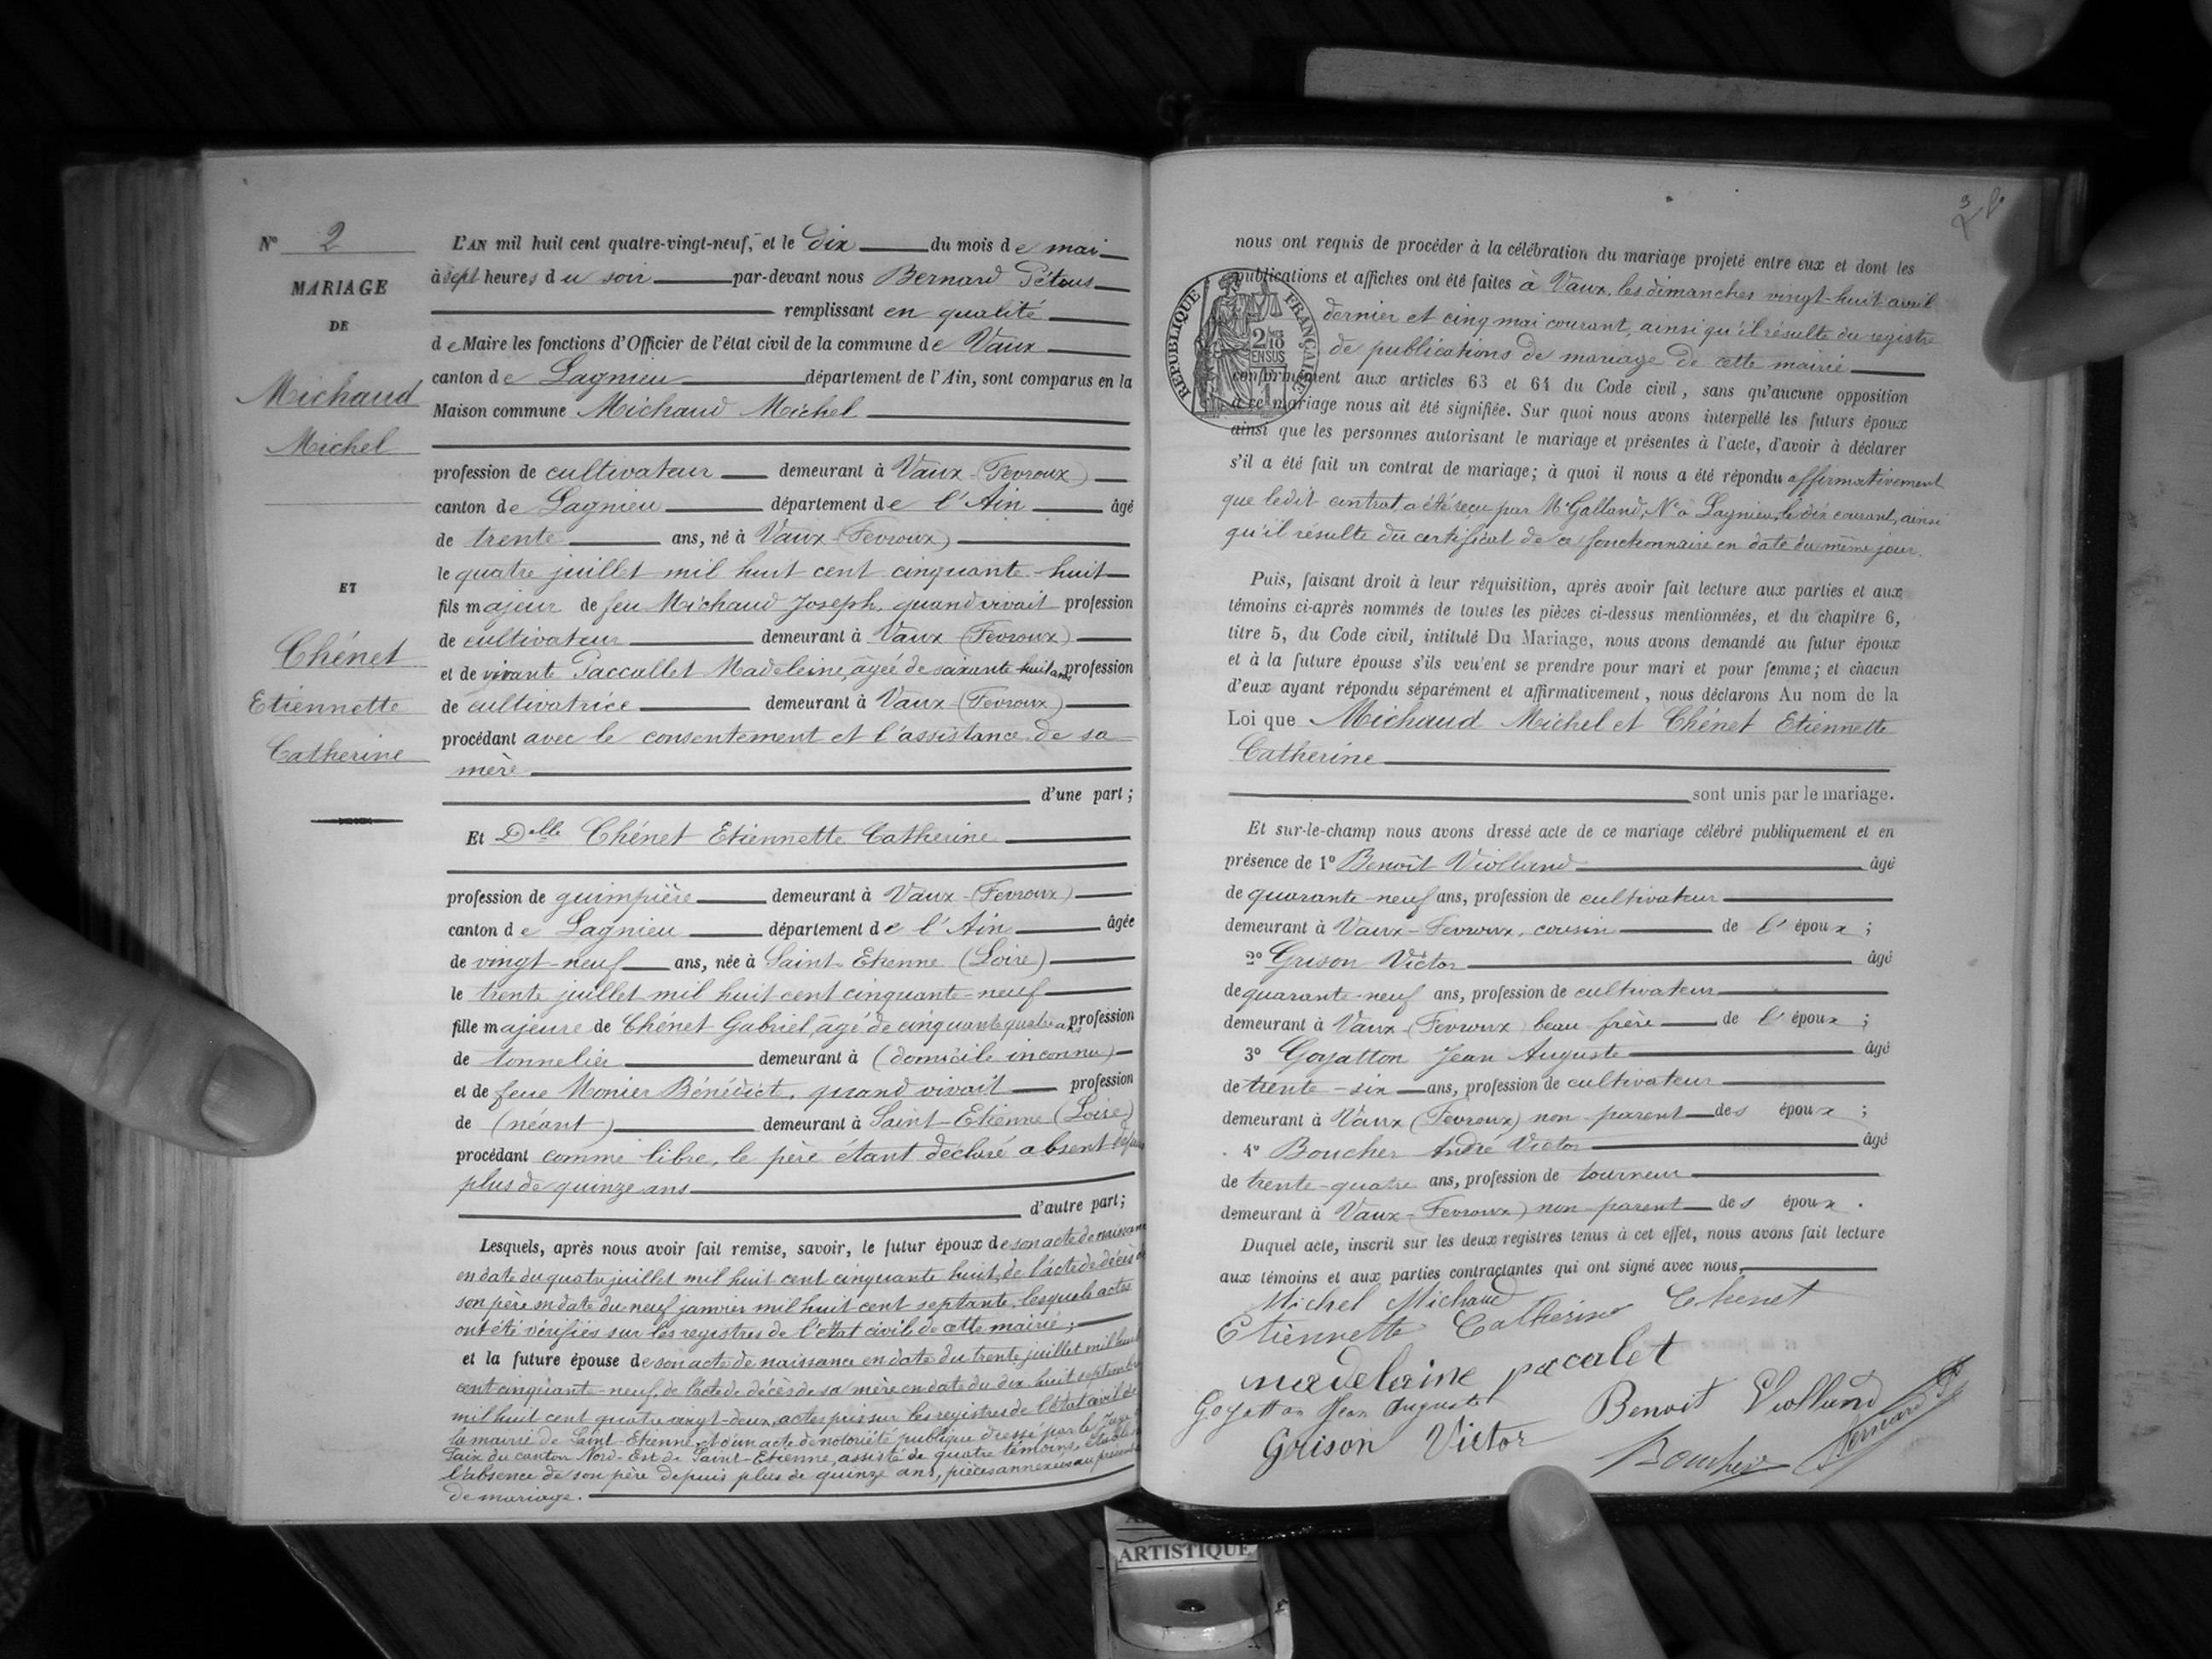 N° 2
MARIAGE
DE
Michaud
Michel
ET
Chénet
Etiennette
Catherine
L'AN mil huit cent quatre-vingt-neuf, et le dix du mois de mai
à sept heures du soir par-devant nous Bernard Pétrus
remplissant en qualité
de Maire les fonctions d'Officier de l'état civil de la commune de Vaux
canton de Lagnieu département de l'Ain, sont comparus en la
Maison commune Michaud Michel
profession de cultivateur demeurant à Vaux (Fevroux)
canton de Lagnieu département de l'Ain âgé
de trente ans, né à Vaux (Fevroux)
le quatre juillet mil huit cent cinquante-huit
fils majeur de feu Michaud Joseph, quand vivait profession
de cultivateur demeurant à Vaux (Fevroux)
et de vivante Paccallet Madeleine, âgée de soixante-huit ans, profession
de cultivatrice demeurant à Vaux (Fevroux)
procédant avec le consentement et l'assistance de sa
mère
d'une part ;
Et Delle Chénet Etiennette Catherine
profession de guimpière demeurant à Vaux (Fevroux)
canton de Lagnieu département de l'Ain âgée
de vingt-neuf ans, née à Saint-Etienne (Loire)
le trente juillet mil huit cent cinquante-neuf
fille majeure de Chénet Gabriel, âgé de cinquante quatre ans profession
de tonnelier demeurant à (domicile inconnu)
et de feue Monier Bénédicte, quand vivait profession
de (néant) demeurant à Saint-Etienne (Loire)
procédant comme libre, le père étant déclaré absent depuis
plus de quinze ans
d'autre part ;
Lesquels, après nous avoir fait remise, savoir, le futur époux de son acte de naissance
en date du quatre juillet mil huit cent cinquante huit, de l'acte de décès de
son père en date du neuf janvier mil huit cent septante, lesquels actes
ont été vérifiés sur les registres de l'état civil de cette mairie ;
et la future épouse de son acte de naissance en date du trente juillet mil huit
cent cinquante-neuf, de l'acte de décès de sa mère en date du dix huit septembre
mil huit cent quatre vingt-deux, actes pris sur les registres de l'état civil de
la mairie de Saint-Etienne, et d'un acte de notoriété publique dressé par le Juge de
Paix du canton Nord-Est de Saint-Etienne, assisté de quatre témoins, établissant
l'absence de son père depuis plus de quinze ans, pièces annexées au présent
de mariage.
3
nous ont requis de procéder à la célébration du mariage projeté entre eux et dont les
publications et affiches ont été faites à Vaux, les dimanches vingt-huit avril
dernier et cinq mai courant, ainsi qu'il résulte du registre
de publications de mariage de cette mairie
conformément aux articles 63 et 64 du Code civil, sans qu'aucune opposition
à ce mariage nous ait été signifiée. Sur quoi nous avons interpellé les futurs époux
ainsi que les personnes autorisant le mariage et présentes à l'acte, d'avoir à déclarer
s'il a été fait un contrat de mariage ; à quoi il nous a été répondu affirmativement
que ledit contrat a été reçu par Me Galland, Nre à Lagnieu, le dix courant, ainsi
qu'il résulte du certificat de ce fonctionnaire en date du même jour.
RÉPUBLIQUE FRANÇAISE
2/10 EN SUS
Puis, faisant droit à leur réquisition, après avoir fait lecture aux parties et aux
témoins ci-après nommés de toutes les pièces ci-dessus mentionnées, et du chapitre 6,
titre 5, du Code civil, intitulé Du Mariage, nous avons demandé au futur époux
et à la future épouse s'ils veulent se prendre pour mari et pour femme ; et chacun
d'eux ayant répondu séparément et affirmativement, nous déclarons Au nom de la
Loi que Michaud Michel et Chénet Etiennette
Catherine
sont unis par le mariage.
Et sur-le-champ nous avons dressé acte de ce mariage célébré publiquement et en
présence de 1° Benoît Violland âgé
de quarante-neuf ans, profession de cultivateur
demeurant à Vaux-Fevroux, cousin de l'époux ;
2° Grison Victor âgé
de quarante-neuf ans, profession de cultivateur
demeurant à Vaux (Fevroux) beau frère de l'époux ;
3° Goyatton Jean Auguste âgé
de trente-six ans, profession de cultivateur
demeurant à Vaux (Fevroux) non parent des époux ;
4° Boucher André Victor âgé
de trente-quatre ans, profession de tourneur
demeurant à Vaux (Fevroux) non parent des époux.
Duquel acte, inscrit sur les deux registres tenus à cet effet, nous avons fait lecture
aux témoins et aux parties contractantes qui ont signé avec nous,
Michel Michaud
Etiennette Catherine Chenet
madeleine pacalet
Goyatton Jean Auguste Benoit Violland
Grison Victor Boucher Bernard P
ARTISTIQUE